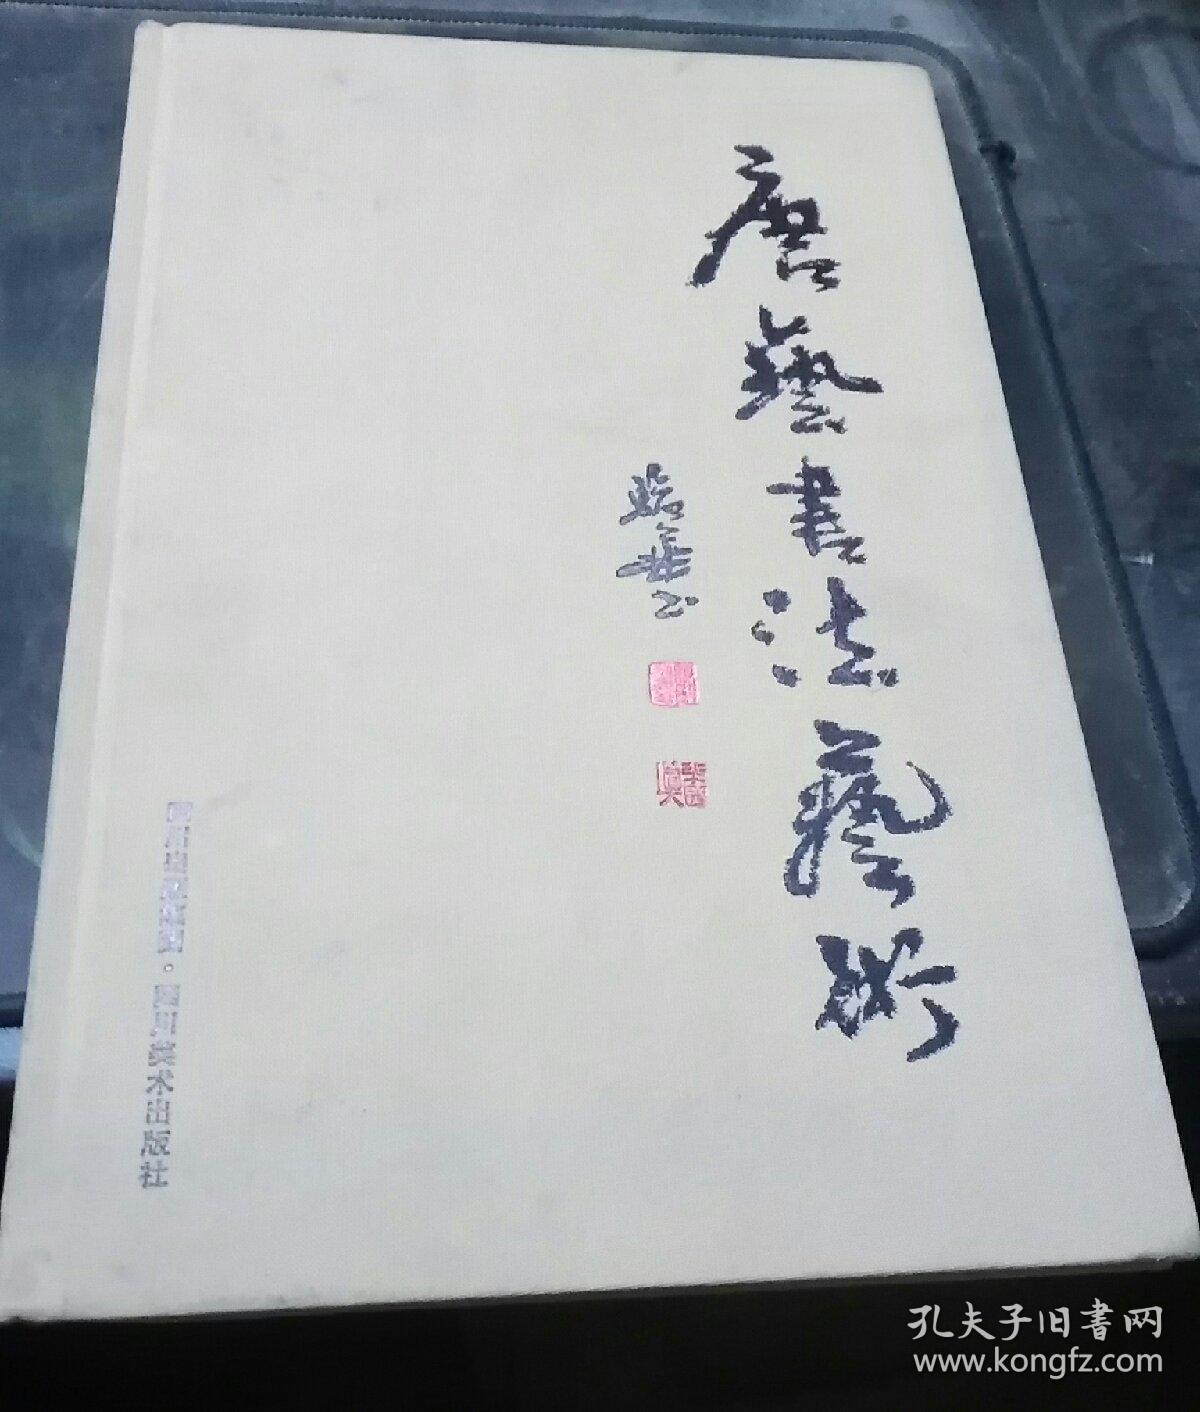 唐藝書法藝術
四川出版集团·四川美术出版社
孔夫子旧書网
www.kongfz.com